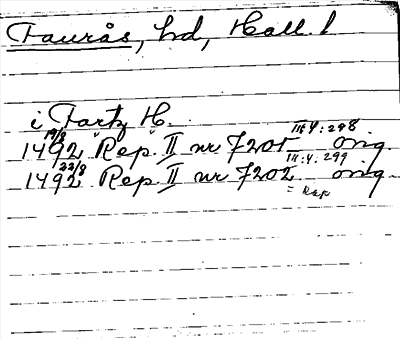 Faurås, hd, Hall. l
i Fartz H.
19/8 III:4:298
1492 Rep. II nr 7201 orig
22/8 III:4:299
1492 Rep II nr 7202 orig
= Rep